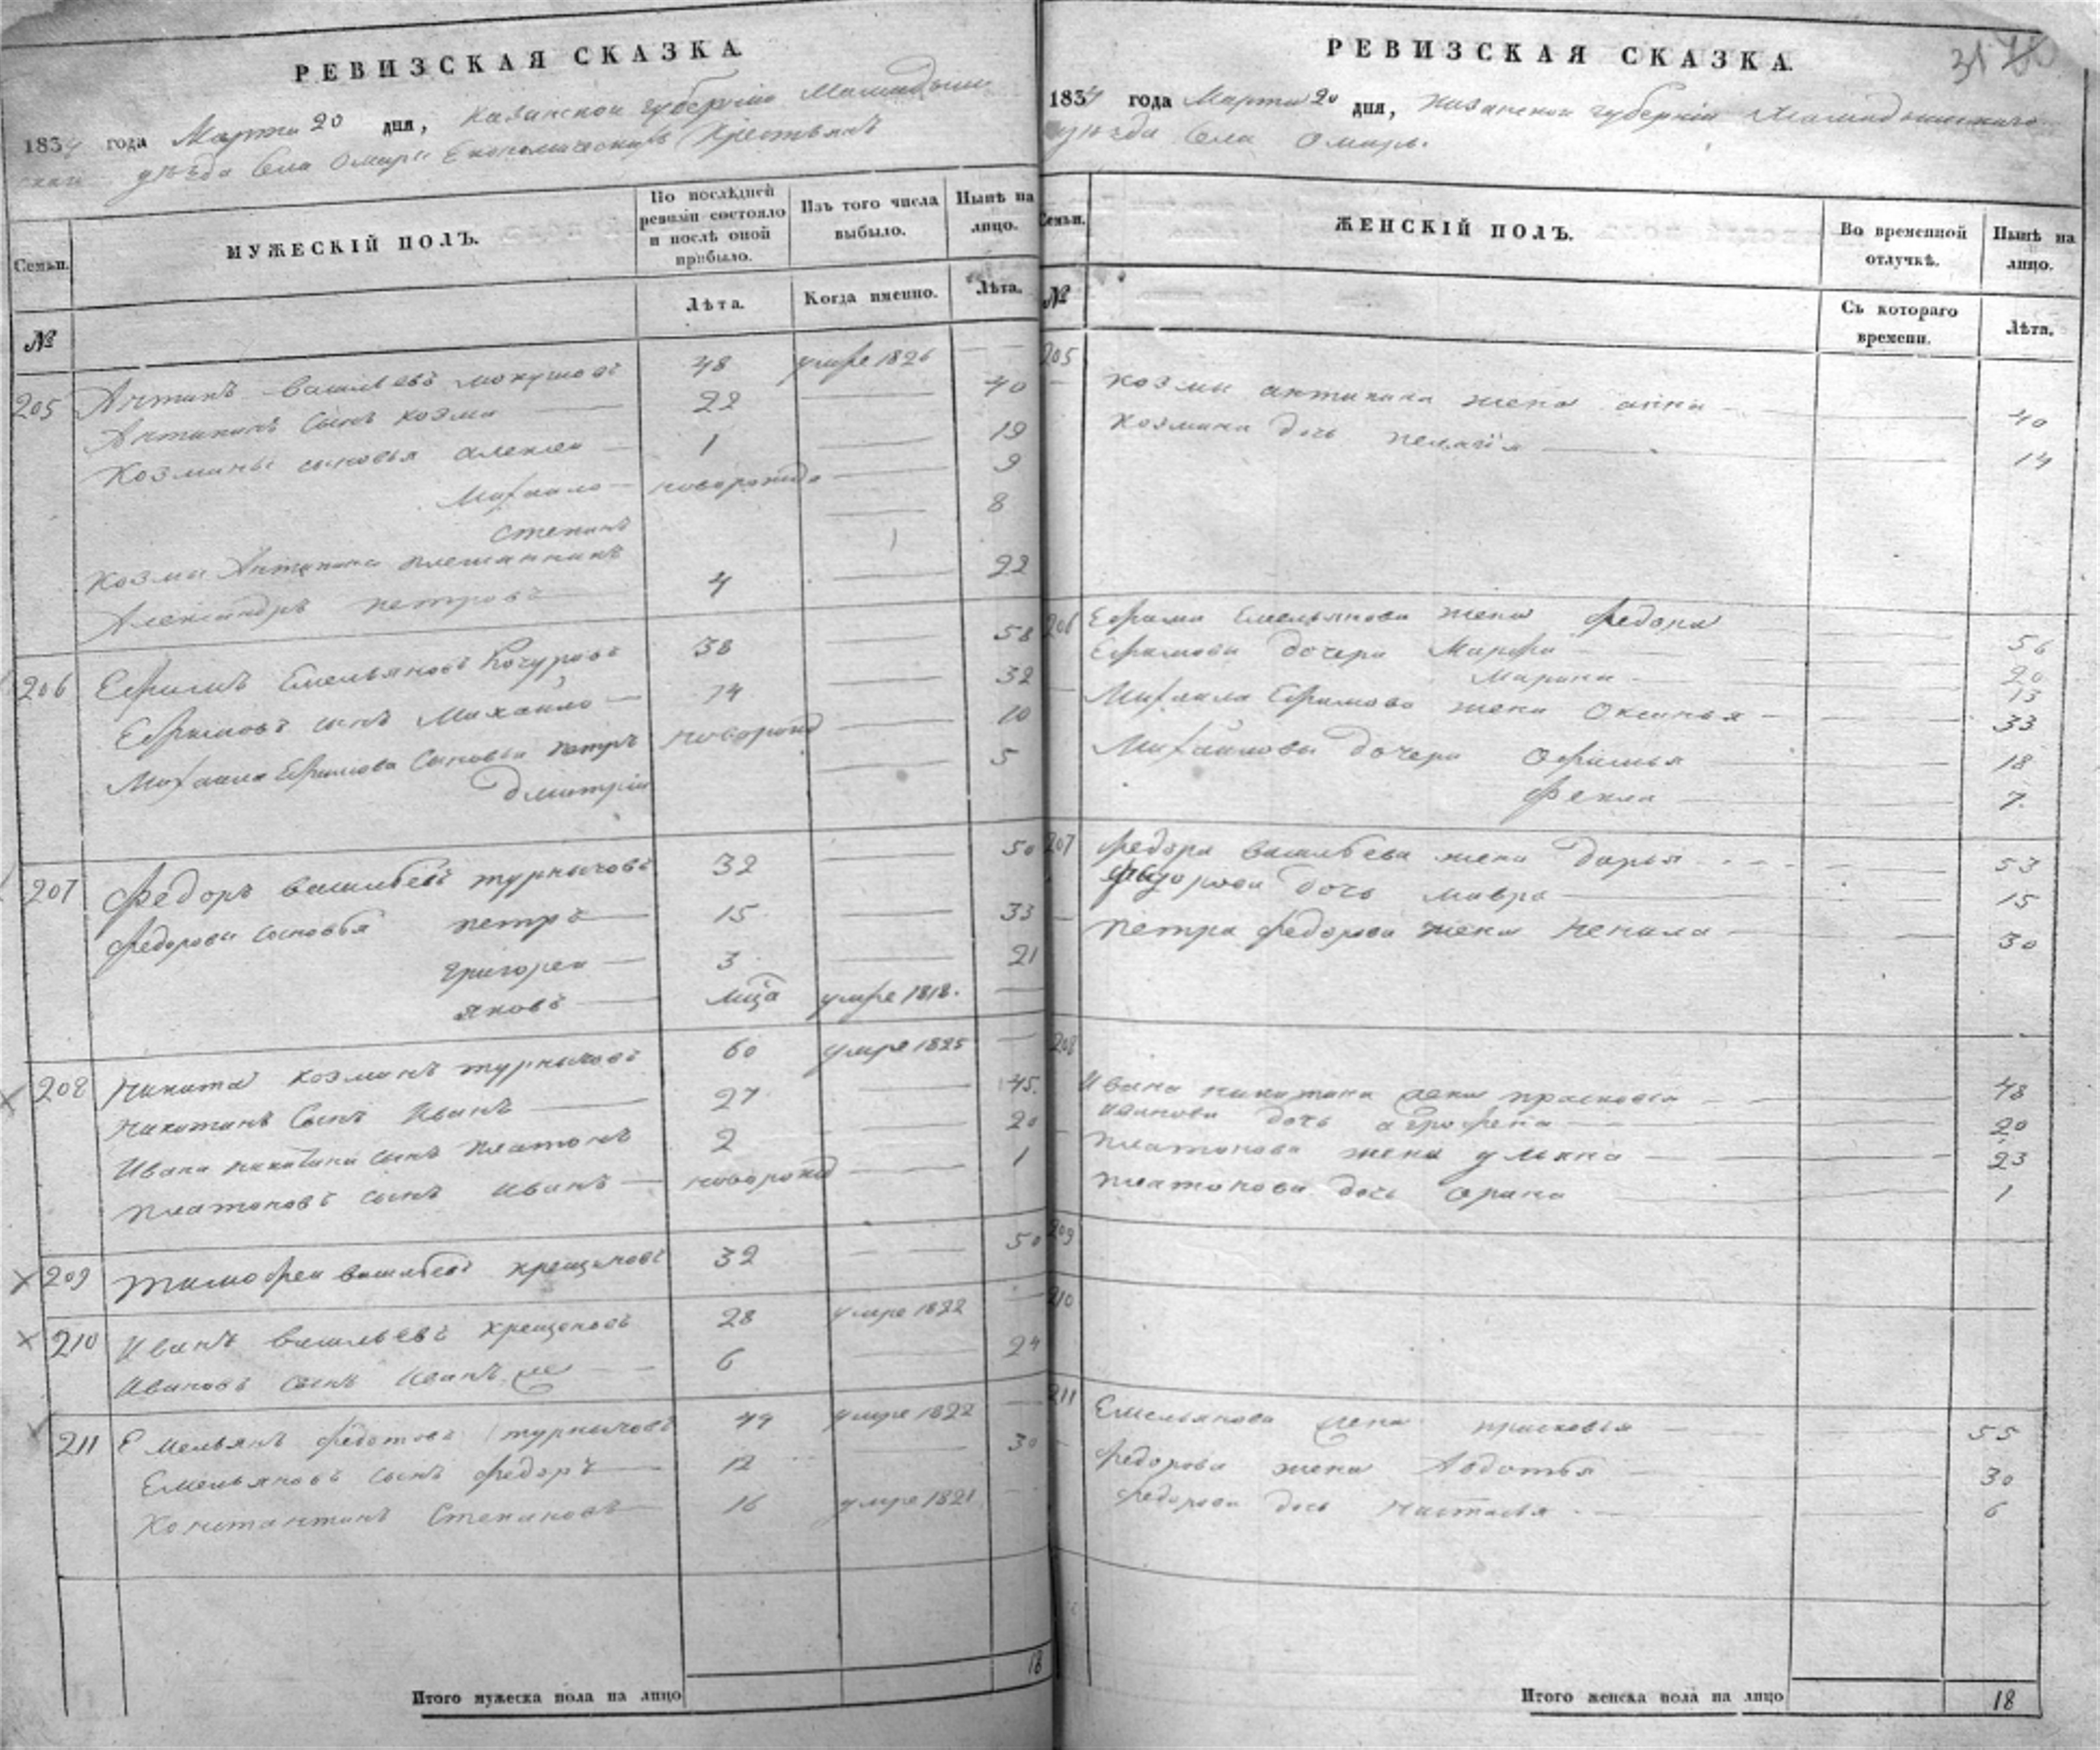 РЕВИЗСКАЯ СКАЗКА
1834 года Марта 20 дня, Казанской губернiи Мамадыш
ской уѣзда Села Омары Економическихъ Крестьянъ
Семьи.
МУЖЕСКIЙ ПОЛЪ.
По послѣдней ревизiи состояло и послѣ оной прибыло.
Изъ того числа выбыло.
Нынѣ на лицо.
№
Лѣта.
Когда именно.
Лѣта.
205 Антипъ Васильевъ 48 умре 1826
Антипинъ сынъ Козма 22 40
Козмины сыновья Алексеи 1 19
Михаило новорожд 9
Степанъ 8
Козмы Антипина племянникъ
Александръ Петровъ 4 22
206 Ефимъ Емельяновъ Кочуровъ 38 58
Ефимовъ сынъ Михайло 14 32
Михаила Ефимова сыновьи Петръ новорожд 10
Дмитрiй 5
207 Федоръ Васильевъ Турнычовъ 32 50
Федоровы сыновья Петръ 15 33
Григореи 3 21
Яковъ мца умре 1818.
208 Никита Козминъ Турнычовъ 60 умре 1825
Никитинъ сынъ Иванъ 27 45.
Ивана Никитина сынъ Платонъ 2 20
Платоновъ сынъ Иванъ новорожд 1
209 Тимофеи Васильевъ Крещеновъ 32 50
210 Иванъ Васильевъ Крещеновъ 28 умре 1822
Ивановъ сынъ Иванъ же 6 24
211 Емельянъ Федотовъ Турнычовъ 49 умре 1822
Емельяновъ сынъ Федоръ 12 30
Константинъ Степановъ 16 умре 1821
Итого мужеска пола на лицо 18
РЕВИЗСКАЯ СКАЗКА.
31
1834 года Марта 20 дня, Казанской губернiи Мамадышскаго
уѣзда Села Омары.
Семьи.
ЖЕНСКIЙ ПОЛЪ.
Во временной отлучкѣ.
Нынѣ на лицо.
№
Съ котораго времени.
Лѣта.
205
Козмы Антипина жена Анна 40
Козмина дочь Пелагiя 14
206 Ефима Емельянова жена Федора 56
Ефимовы дочери Марфа 20
Марина 13
Михаила Ефимова жена Оксинья 33
Михайловы дочери Офимья 18
Фекла 7.
207 Федора Васильева жена Дарья 53
Федорова дочь Мавра 15
Петра Федорова жена Ненила 30
208
Ивана Никитина жена Прасковья 48
Иванова дочь Аграфена 20
Платонова жена Ульяна 23
Платонова дочь Орина 1
209
210
211 Емельянова жена Прасковья 55
Федорова жена Авдотья 30
Федорова дочь Настасья 6
Итого женска пола на лицо 18